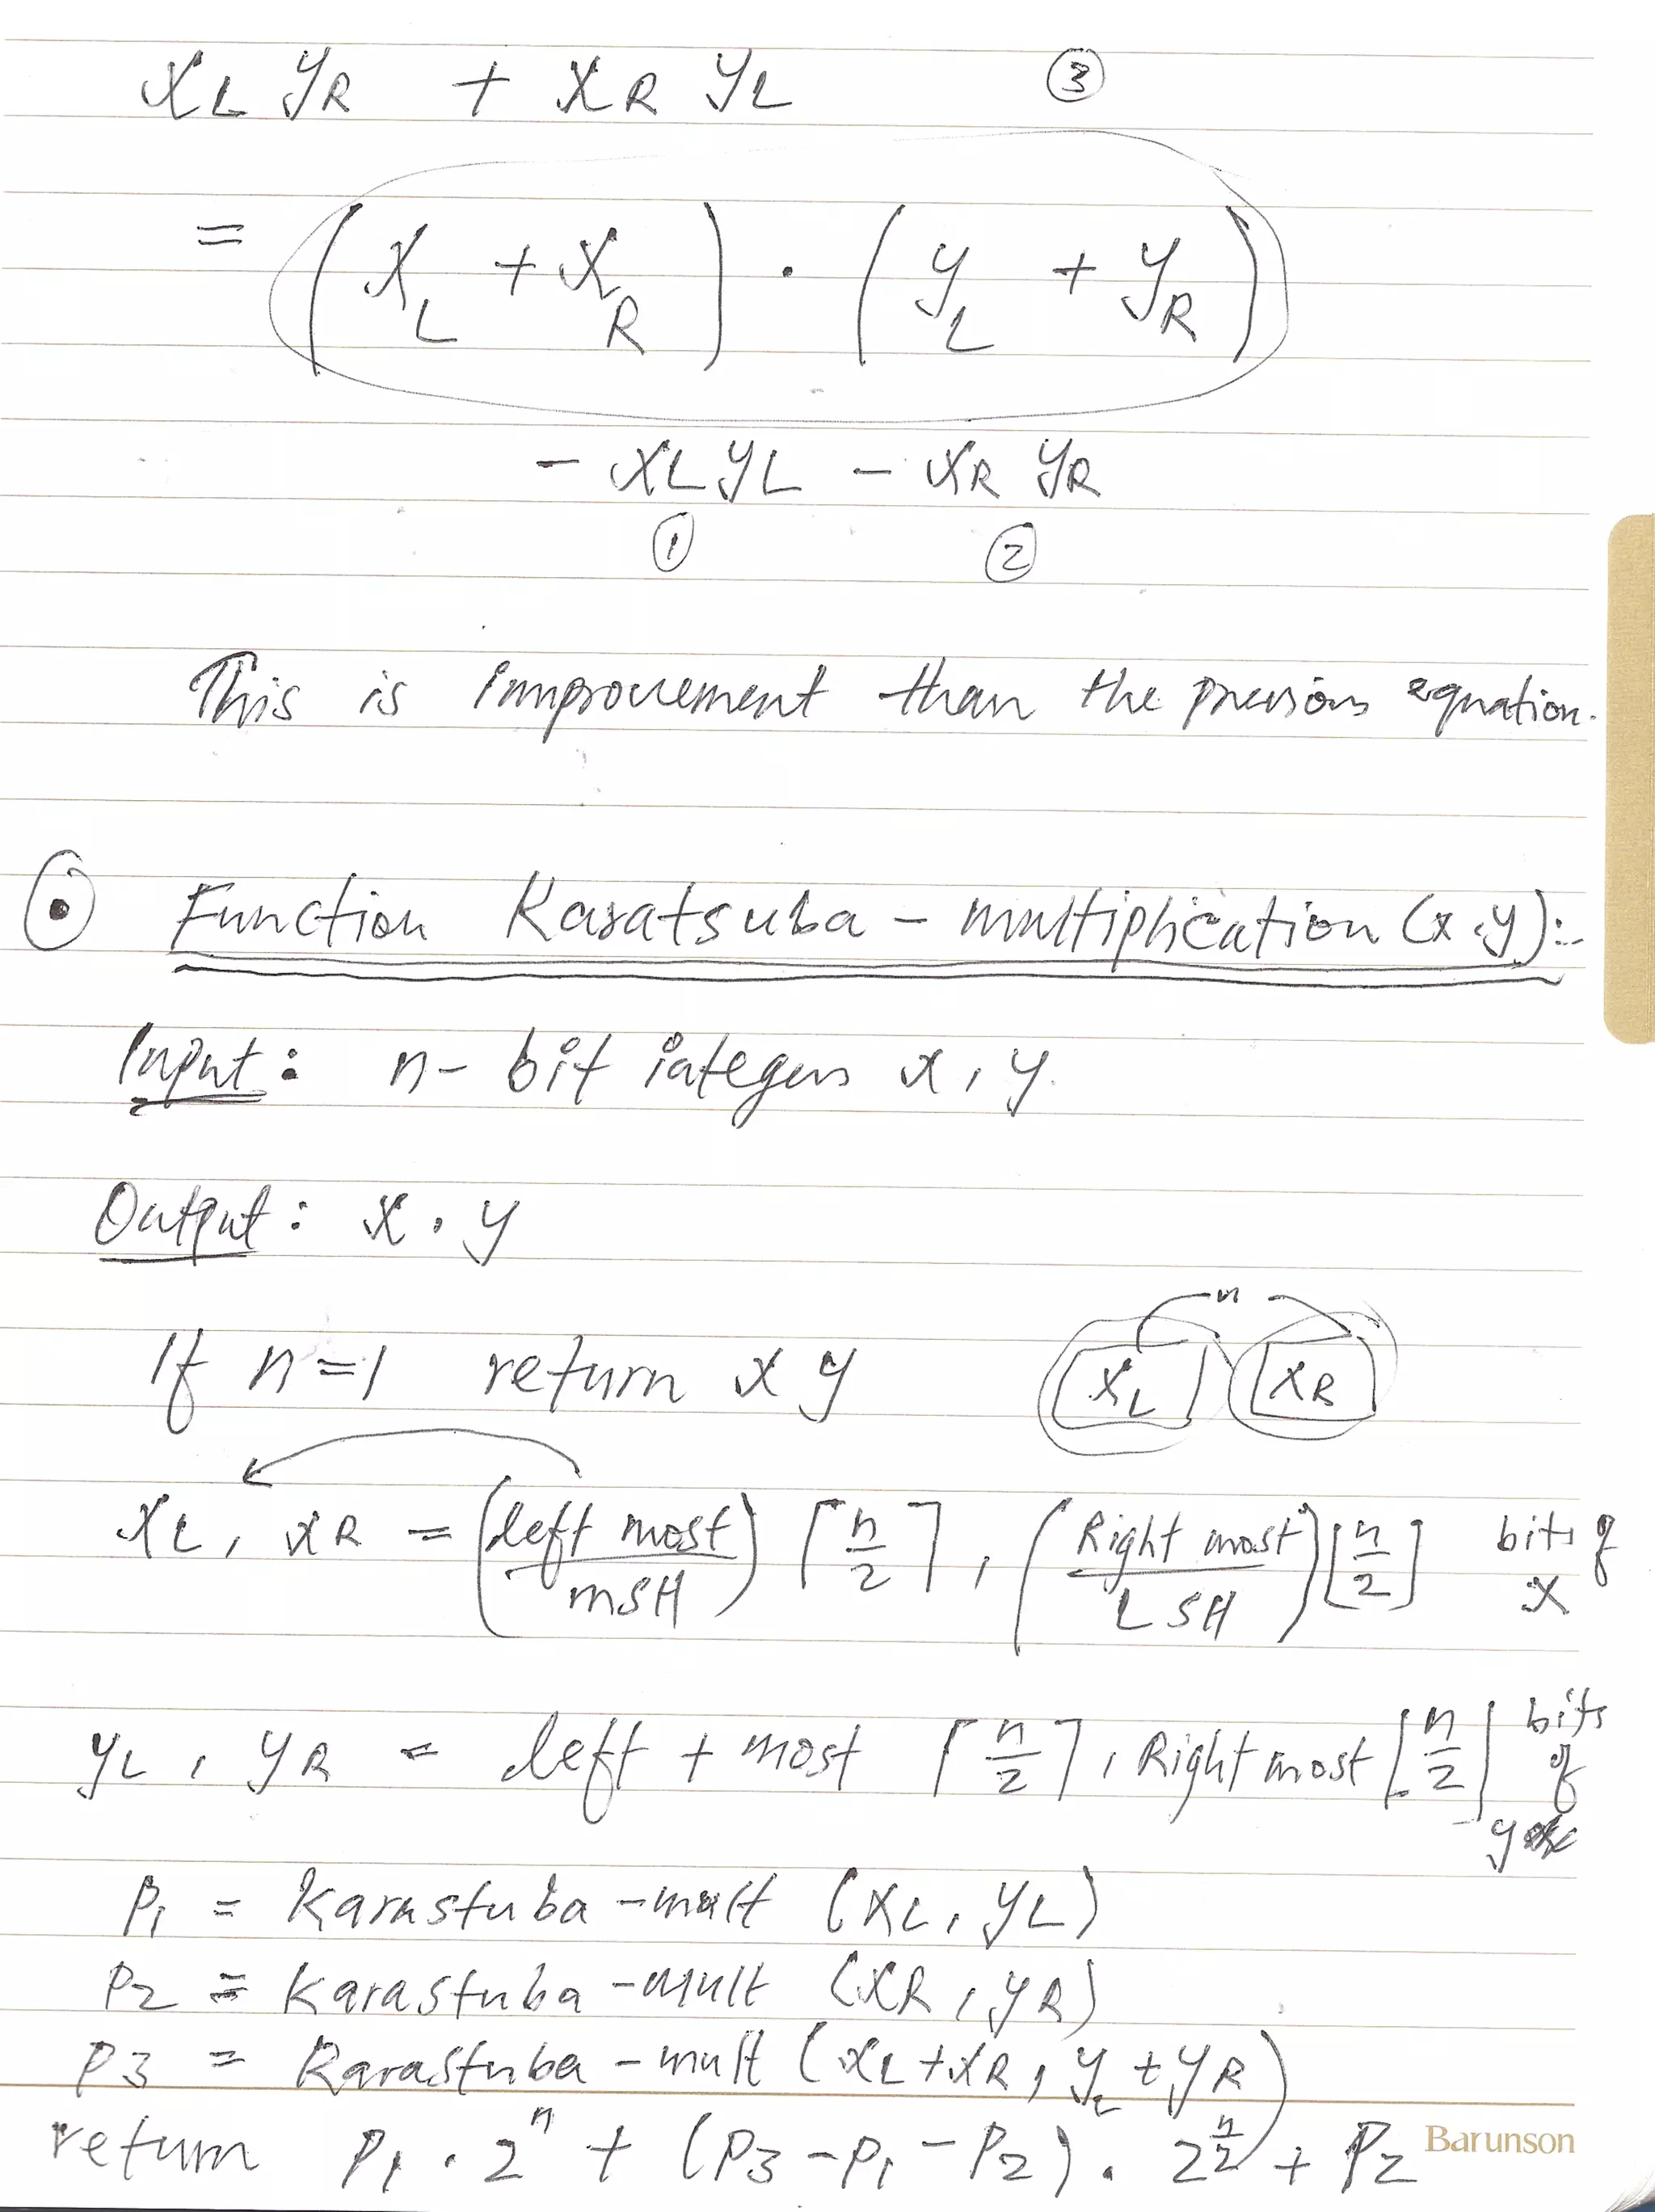 xL yR + xR yL ③
= (xL + xR) · (yL + yR)
- xL yL - xR yR
① ②
This is improvement than the previous equation.
⊙ Function Karatsuba - multiplication (x, y) :-
Input : n - bit integers x, y.
Output : x . y
n
If n = 1 return x y xL xR
xL, xR = (left most / MSH) ⌈n/2⌉, (Right most / LSH) ⌊n/2⌋ bits of x
yL, yR = left + most ⌈n/2⌉, Right most ⌊n/2⌋ bits of y
P1 = Karastuba - mult (xL, yL)
P2 = Karastuba - mult (xR, yR)
P3 = Karastuba - mult (xL + xR, yL + yR)
return P1 . 2^n + (P3 - P1 - P2) . 2^(n/2) + P2
Barunson